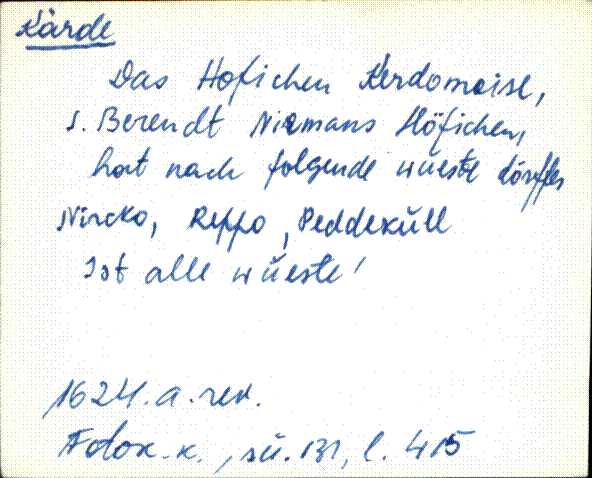 Kärde
Das Hofichen Kerdomoise,
s. Berendt Niemans Höfichen,
hat nach folgende wüeste dörffer
Nircko, Reppo, Peddeküll
Ist alle wüeste!
1624. a. rev.
Fotok. k., sü. 131, l. 415